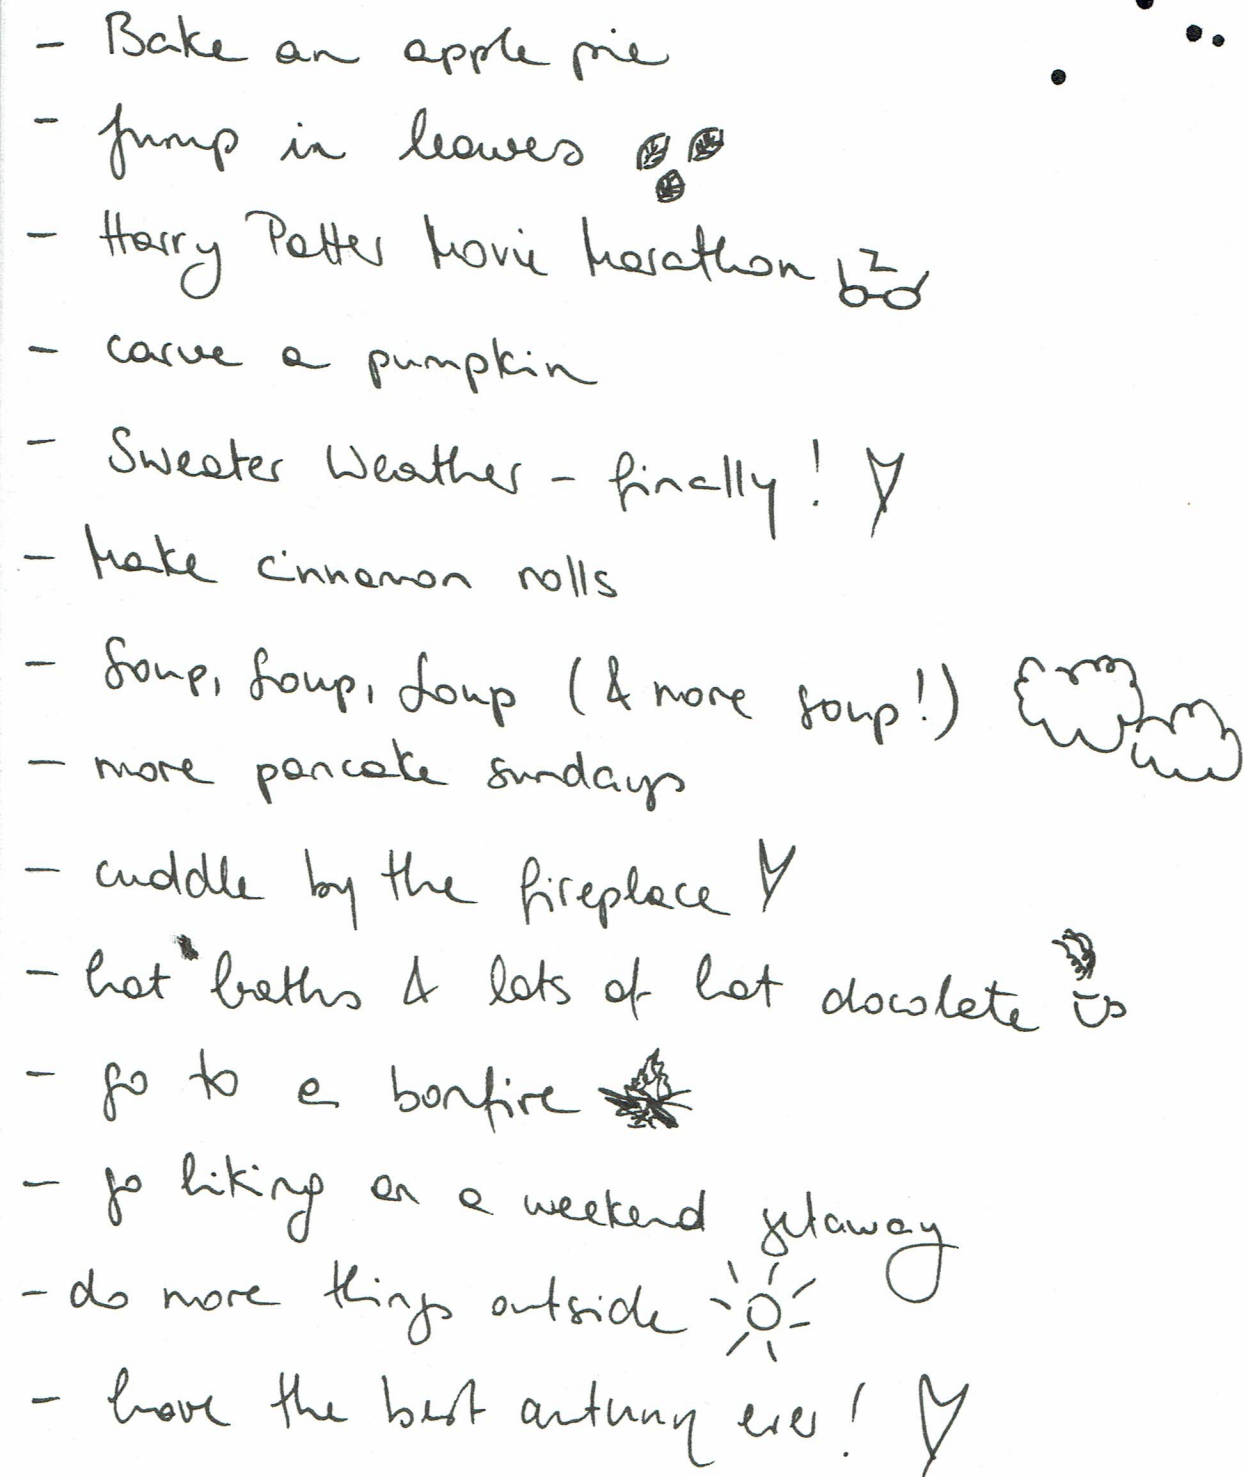 - Bake an apple pie
- Jump in leaves
- Harry Potter Movie Marathon
- carve a pumpkin
- Sweater Weather - finally!
- Make cinnamon rolls
- Soup, Soup, Soup (& more soup!)
- more pancake sundays
- cuddle by the fireplace
- hot baths & lots of hot chocolate
- go to a bonfire
- go hiking on a weekend getaway
- do more things outside
- have the best autumn ever!